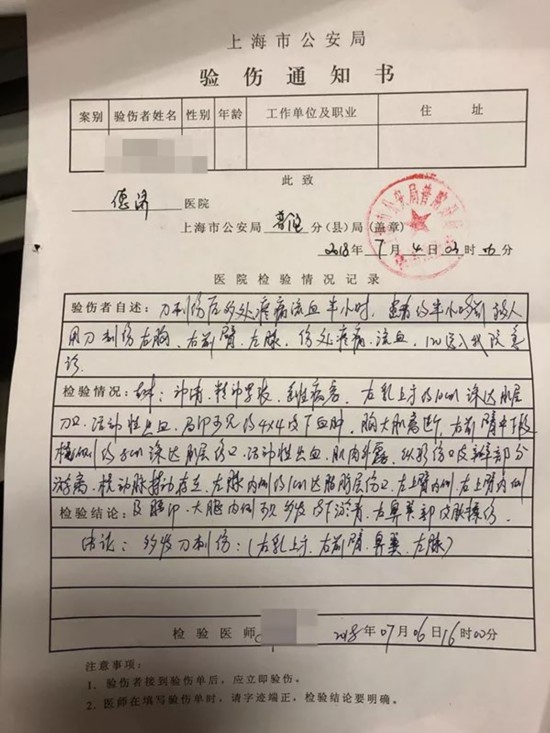 上海市公安局
验伤通知书
案别 验伤者姓名 性别 年龄 工作单位及职业 住 址
此致
德济 医院
上海市公安局 普陀 分(县)局(盖章)
2018 年 7 月 4 日 时 分
医院检验情况记录
验伤者自述: 刀刺伤后多处疼痛流血半小时, 患者约半小时前被人
用刀刺伤左胸、右前臂、左膝, 伤处疼痛、流血, 120送入我院急
诊
检验情况: 神清, 精神 左乳上方约10cm深达肌层
刀口, 活动性出血, 局部可见约4×4皮下血肿, 胸大肌离断, 右前臂中下段
约8cm深达肌层伤口, 活动性出血, 肌肉外露, 部分
游离, 桡动脉搏动存在, 左膝内侧约1cm达脂肪层伤口, 左上臂内侧, 右上臂内侧
检验结论: 大腿内侧可见多发皮下淤青, 右鼻翼部皮肤擦伤.
结论: 多发刀刺伤: (左乳上方、右前臂、鼻翼、左膝)
检验医师 2018 年 07 月 06 日 16 时 00 分
注意事项:
1、验伤者接到验伤单后,应立即验伤。
2、医师在填写验伤单时,请字迹端正,检验结论要明确。